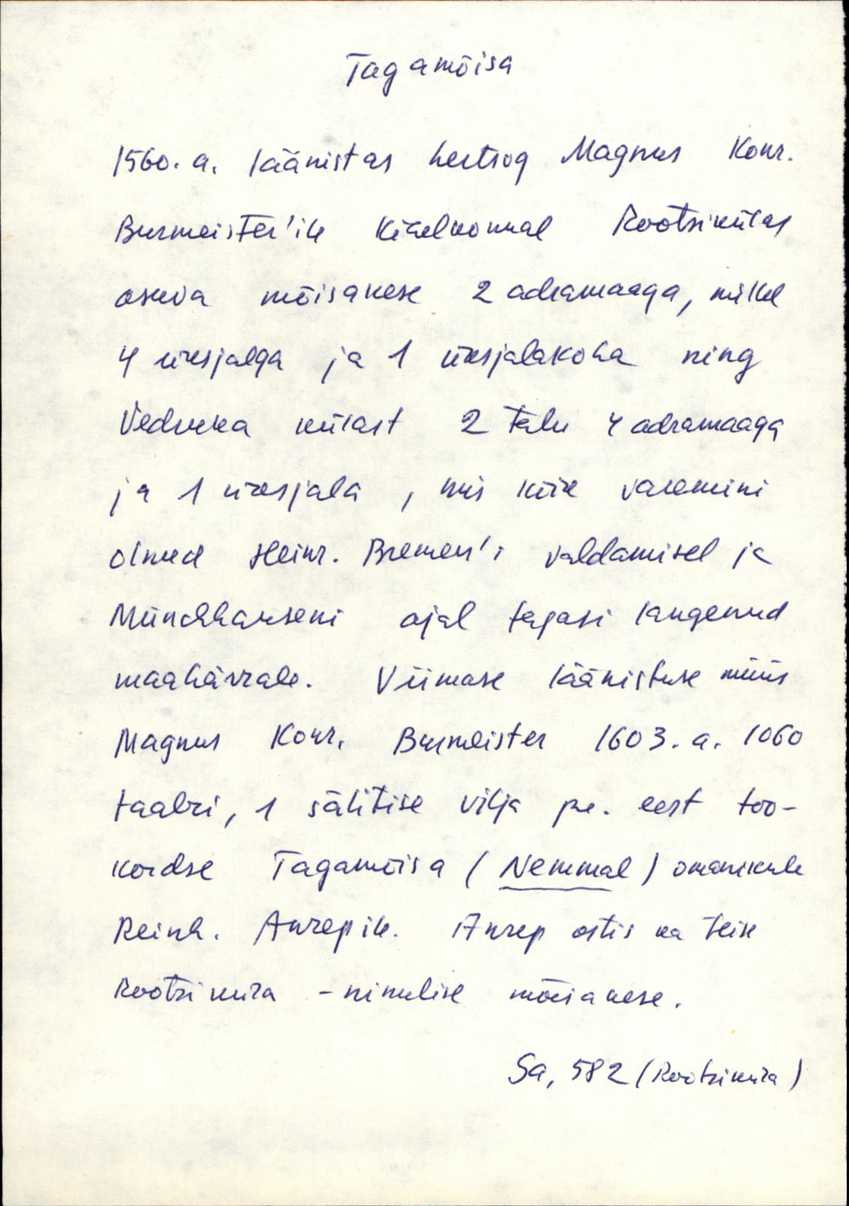 Tagamõisa
1560. a. läänistas hertsog Magnus Konr.
Burmeister'ile Kihelkonnal Rootsikülas
asuva mõisakese 2 adramaaga, millel
4 üksjalga ja 1 üksjalakoha ning
Vedruka külast 2 talu 4 adramaaga
ja 1 üksjala, mis kõik varemini
olnud Heinr. Bremen'i valdamisel ja
Münchhauseni ajal tagasi langenud
maahärrale. Viimase läänistuse müüs
Magnus Konr. Burmeister 1603. a. 1060
taalri, 1 sälitise vilja jne. eest too-
kordse Tagamõisa (Nemmal) omanikule
Reinh. Anrepile. Anrep ostis ka teise
Rootsiküla-nimelise mõisakese.
Sa, 582 (Rootsiküla)